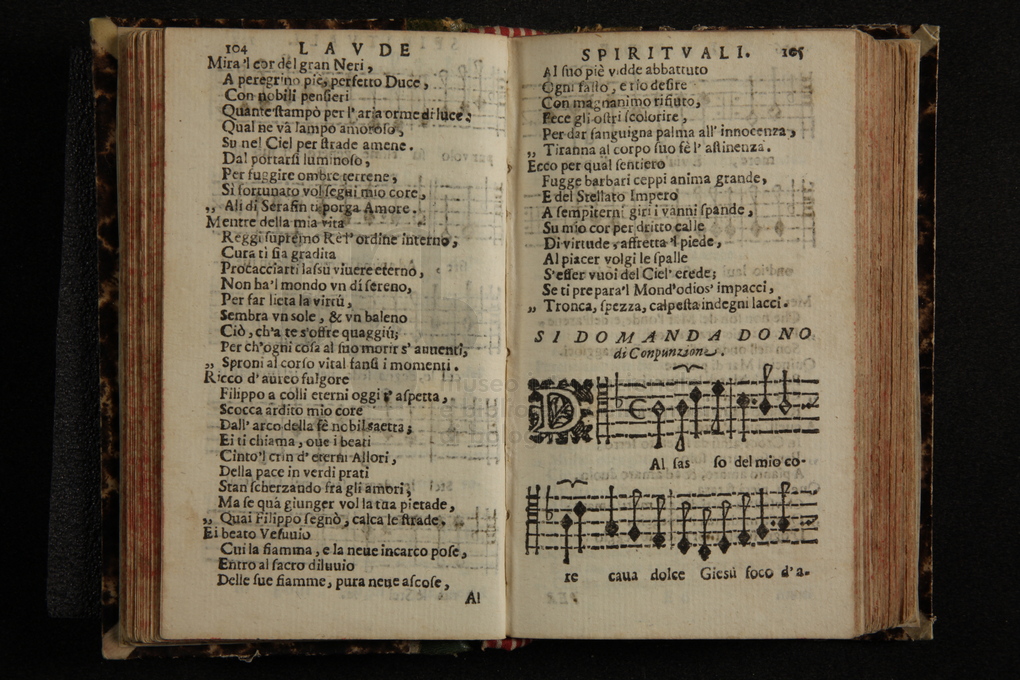 104 LAVDE
Mira'l cor del gran Neri,
A peregrino piè, perfetto Duce,
Con nobili pensieri
Quante stampò per l'aria orme di luce:
Qual ne và lampo amoroso,
Su nel Ciel per strade amene.
Dal portarsi luminoso,
Per fuggire ombre terrene,
Si fortunato vol segui mio core,
„ Ali di Serafin ti porga Amore.
Mentre della mia vita
Reggi supremo Rè l'ordine interno,
Cura ti sia gradita
Procacciarti lassù viuere eterno,
Non ha'l mondo vn dì sereno,
Per far lieta la virtù,
Sembra vn sole, & vn baleno
Ciò, ch'a te s'offre quaggiù;
Per ch'ogni cosa al suo morir s'auuenti,
„ Sproni al corso vital fansi i momenti.
Ricco d'aureo fulgore
Filippo a colli eterni oggi t'aspetta,
Scocca ardito mio core
Dall'arco della fè nobil saetta;
Ei ti chiama, oue i beati
Cinto'l crin d'eterni Allori,
Della pace in verdi prati
Stan scherzando fra gli amori;
Ma se quà giunger vol la tua pietade,
„ Quai Filippo segnò, calca le strade.
Ei beato Vesuuio
Cui la fiamma, e la neue incarco pose,
Entro al sacro diluuio
Delle sue fiamme, pura neue ascose,
Al
SPIRITVALI. 105
Al suo piè vidde abbattuto
Ogni fasto, e rio desire
Con magnanimo rifiuto,
Fece gli ostri scolorire,
Per dar sanguigna palma all'innocenza,
„ Tiranna al corpo suo fè l'astinenza.
Ecco per qual sentiero
Fugge barbari ceppi anima grande,
E del Stellato Impero
A sempiterni giri i vanni spande,
Su mio cor per dritto calle
Di virtude, affretta'l piede,
Al piacer volgi le spalle
S'esser vuoi del Ciel' erede;
Se ti prepara'l Mond'odiosi impacci,
„ Tronca, spezza, calpesta indegni lacci.
SI DOMANDA DONO
di Conpunzione.
D
Al sas so del mio co-
re caua dolce Giesù foco d'a-